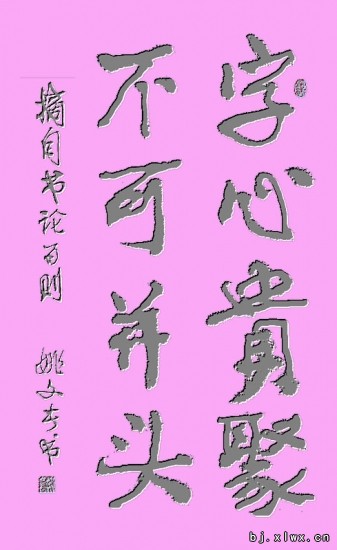 字心貴聚
不可并头
摘自书论百则
姚文奎书
bj.xlwx.cn